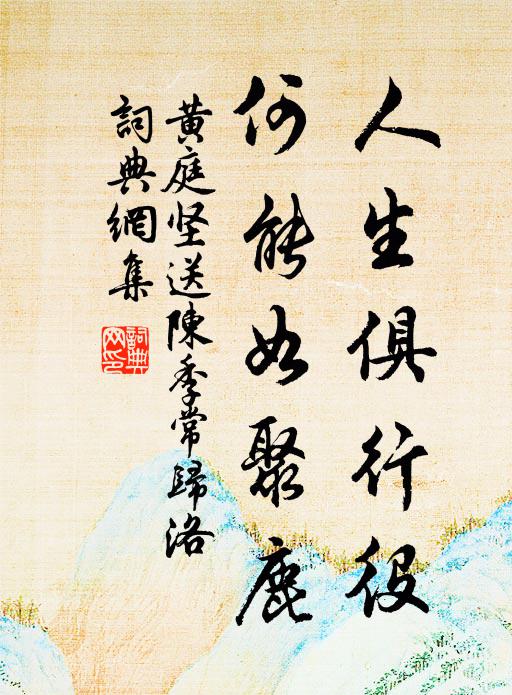 人生俱行役
何能如聚鹿
黄庭坚送陳季常歸洛
詞典網集
詞典網印